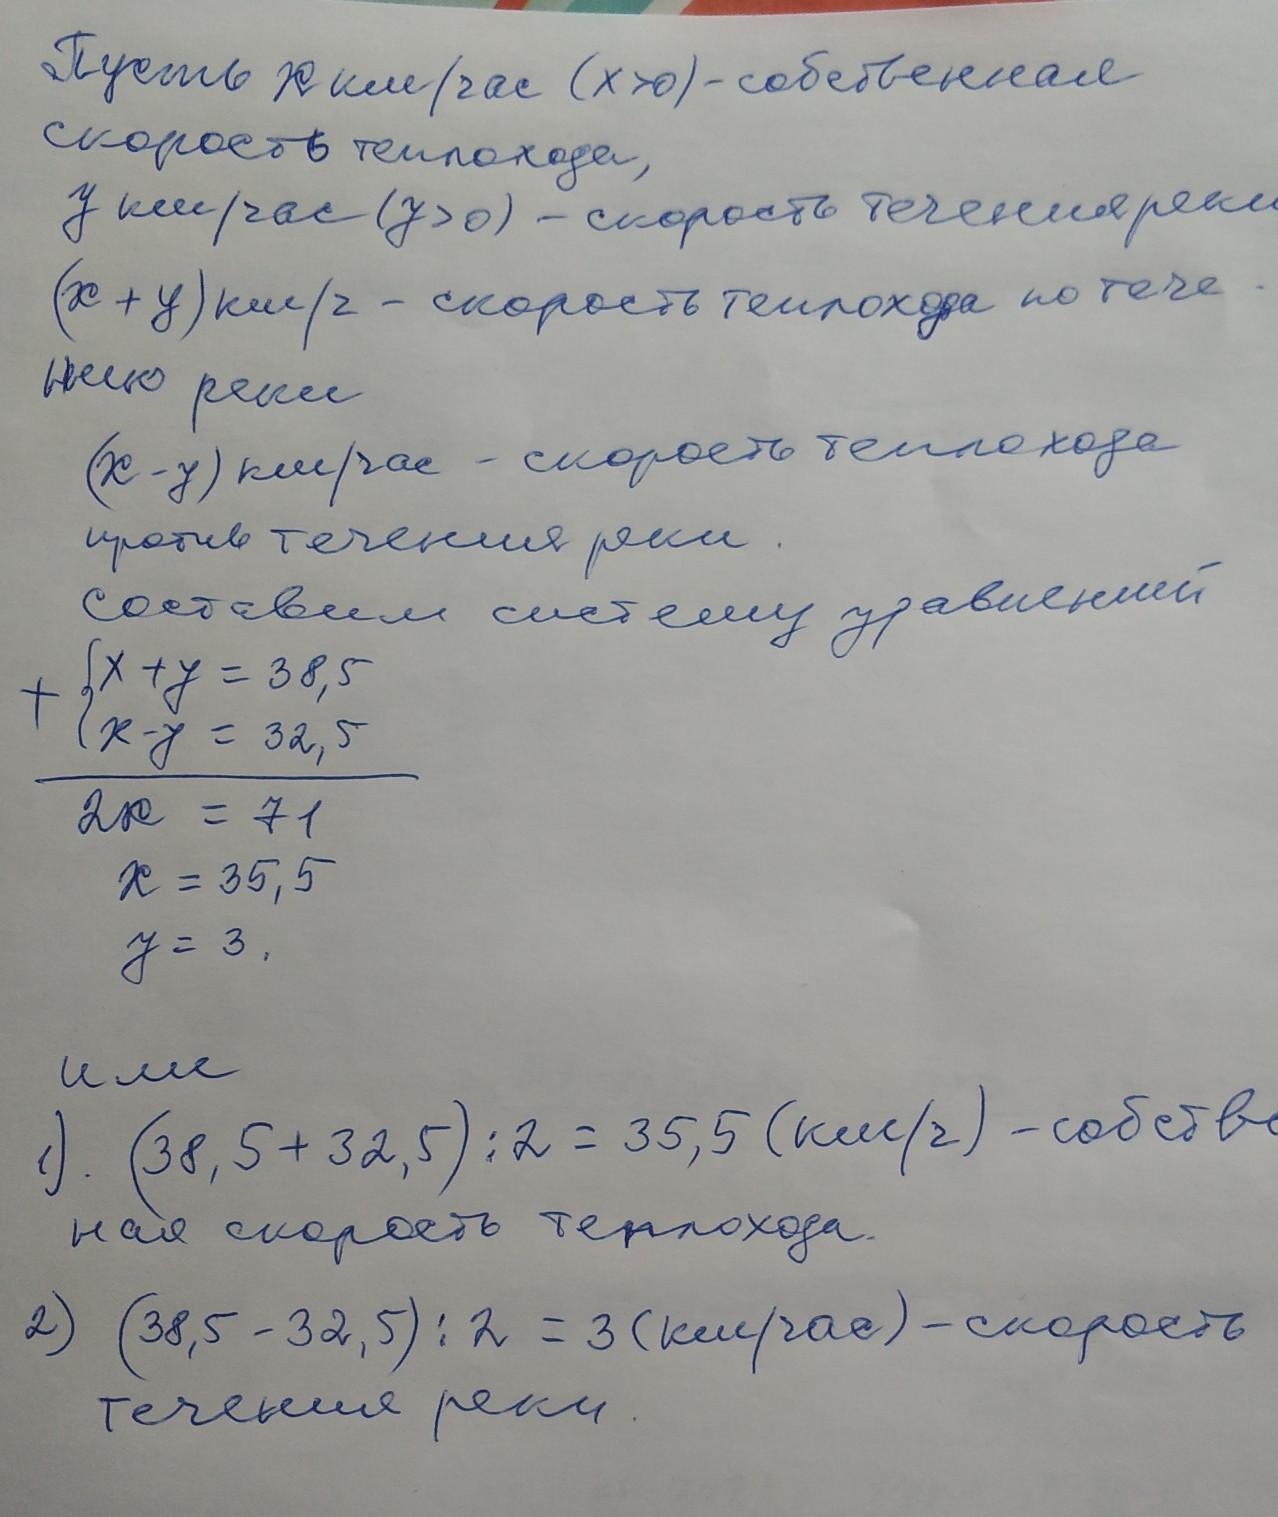 Пусть x км/час (x>0) - собственная
скорость теплохода,
y км/час (y>0) - скорость течения реки
(x + y) км/ч - скорость теплохода по тече -
нию реки
(x - y) км/час - скорость теплохода
против течения реки.
Составим систему уравнений
+ { x + y = 38,5
x - y = 32,5
2x = 71
x = 35,5
y = 3.
или
1). (38,5 + 32,5) : 2 = 35,5 (км/ч) - собстве
ная скорость теплохода.
2) (38,5 - 32,5) : 2 = 3 (км/час) - скорость
течения реки.